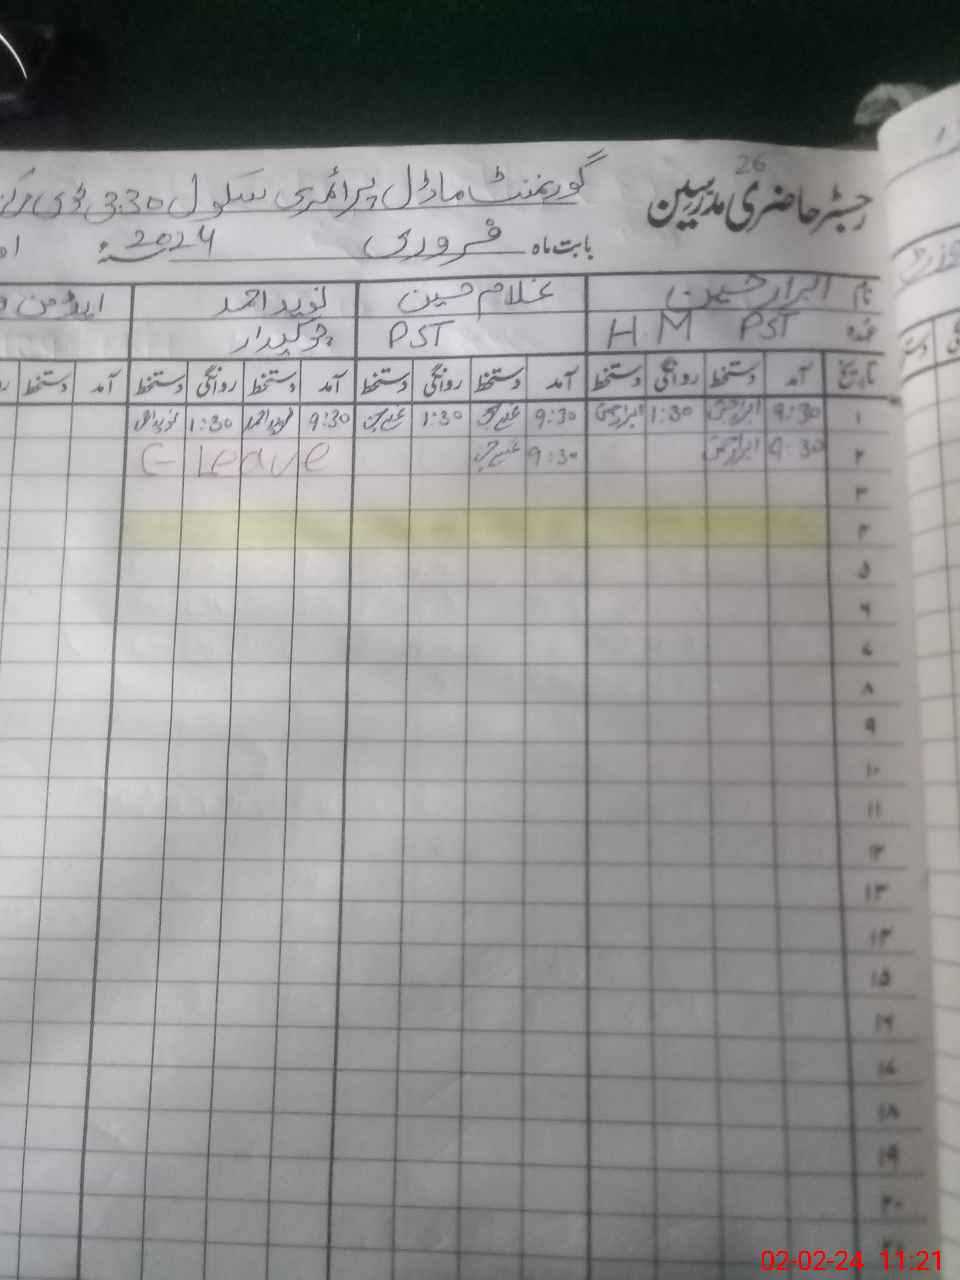 26
رجسٹر حاضری مدرسین گورنمنٹ ماڈل پرائمری سکول 330 ڈی
بابت ماہ فروری 2024
نام ابرار حسین غلام حسین نوید احمد
عہدہ HM PST PST چوکیدار
تاریخ آمد دستخط روانگی دستخط آمد دستخط روانگی دستخط آمد دستخط روانگی دستخط آمد دستخط
۱ 9:30 1:30 9:30 1:30 9:30 نوید احمد 1:30
۲ 9:30 9:30 C-Leave
۳
۴
۵
۶
۷
۸
۹
۱۰
۱۱
۱۲
۱۳
۱۴
۱۵
۱۶
۱۷
۱۸
۱۹
۲۰
۲۱
02-02-24 11:21